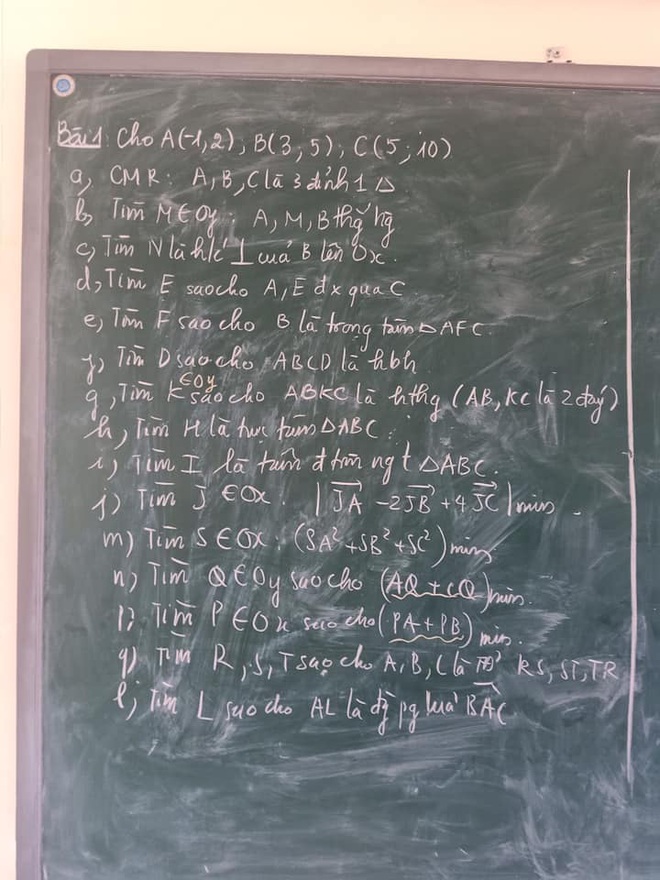 Bài 1: Cho A(-1,2); B(3;5); C(5;10)
a, CMR: A, B, C là 3 đỉnh 1 △
b, Tìm M∈Oy: A, M, B thg hg
c, Tìm N là h/c ⊥ của B lên Ox.
d, Tìm E sao cho A, E đx qua C
e, Tìm F sao cho B là trọng tâm △AFC.
f) Tìm D sao cho ABCD là hbh
g, Tìm K∈Oy sao cho ABKC là hthg (AB, KC là 2 đáy)
h, Tìm H là trực tâm △ABC.
i, Tìm I là tâm đ tròn ng t △ABC.
j) Tìm J ∈Ox. |JA - 2JB + 4JC| min
m) Tìm S∈Ox: (SA² + SB² + SC²) min
n) Tìm Q∈Oy sao cho (AQ + CQ) min.
Tìm P∈Ox sao cho (PA + PB) min.
q) Tìm R, S, T sao cho A, B, C là RS, ST, TR
l, Tìm L sao cho AL là pg của BAC